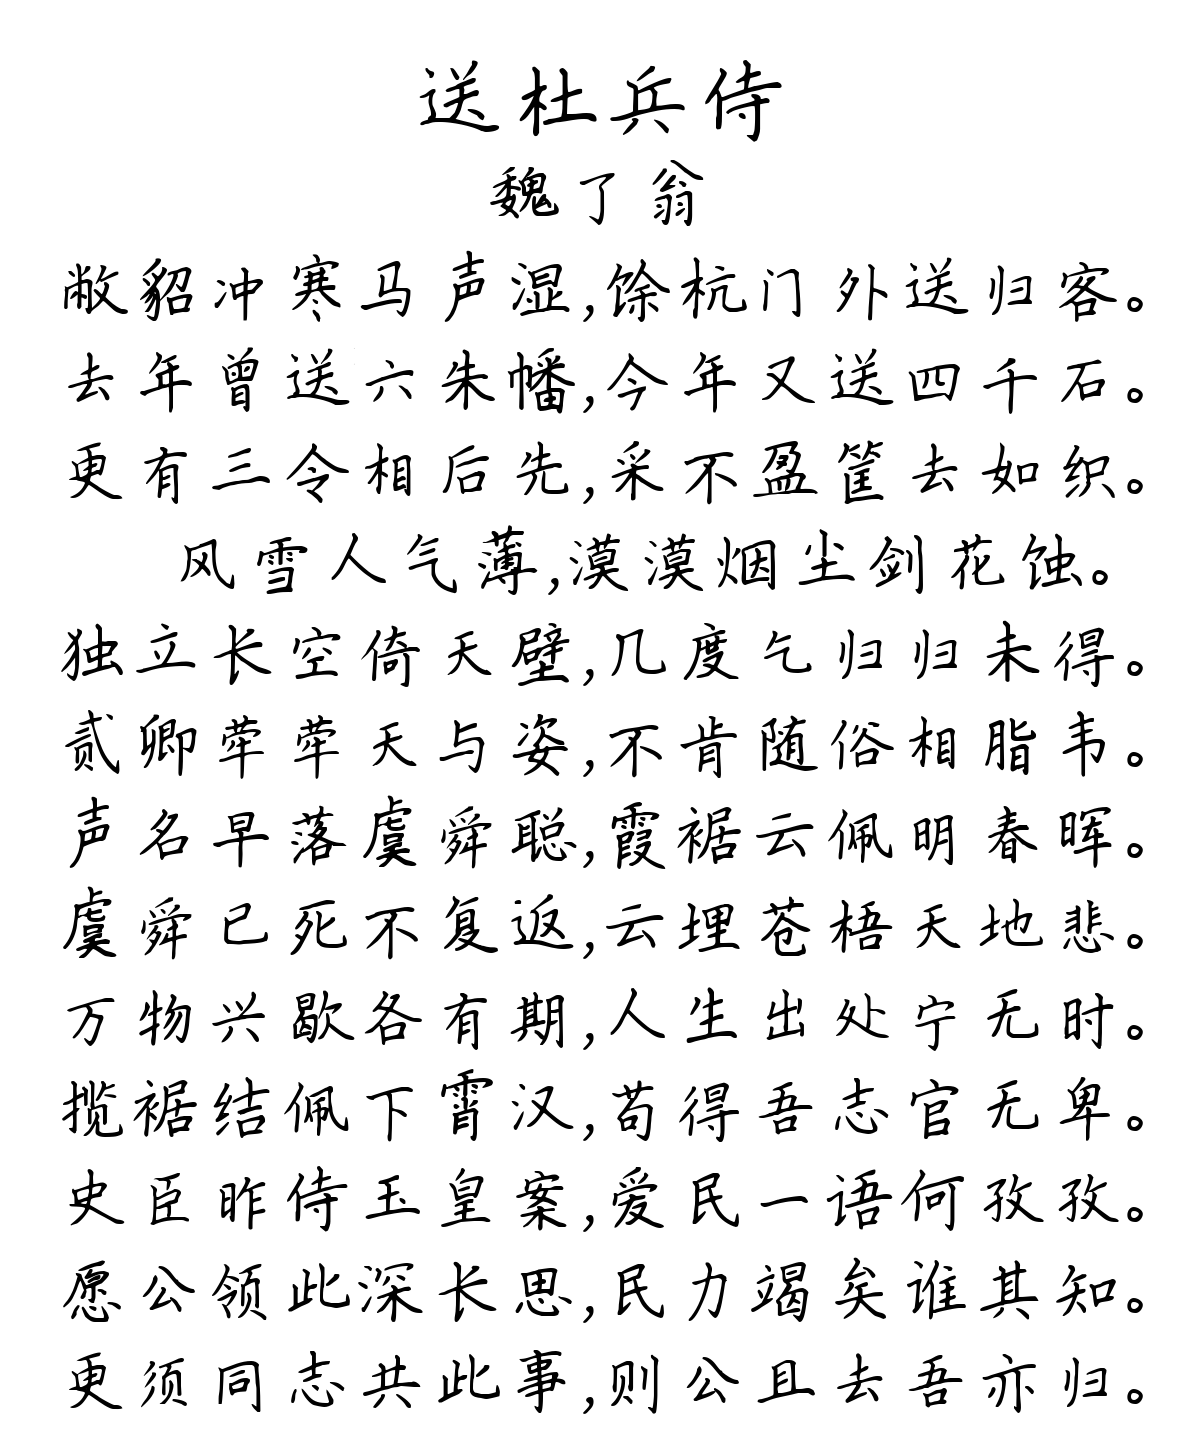 送杜兵侍
魏了翁
敝貂冲寒马声湿,馀杭门外送归客。
去年曾送六朱幡,今年又送四千石。
更有三令相后先,采不盈筐去如织。
风雪人气薄,漠漠烟尘剑花蚀。
独立长空倚天壁,几度乞归归未得。
贰卿荦荦天与姿,不肯随俗相脂韦。
声名早落虞舜聪,霞裾云佩明春晖。
虞舜已死不复返,云埋苍梧天地悲。
万物兴歇各有期,人生出处宁无时。
揽裾结佩下霄汉,苟得吾志官无卑。
史臣昨侍玉皇案,爱民一语何孜孜。
愿公领此深长思,民力竭矣谁其知。
更须同志共此事,则公且去吾亦归。